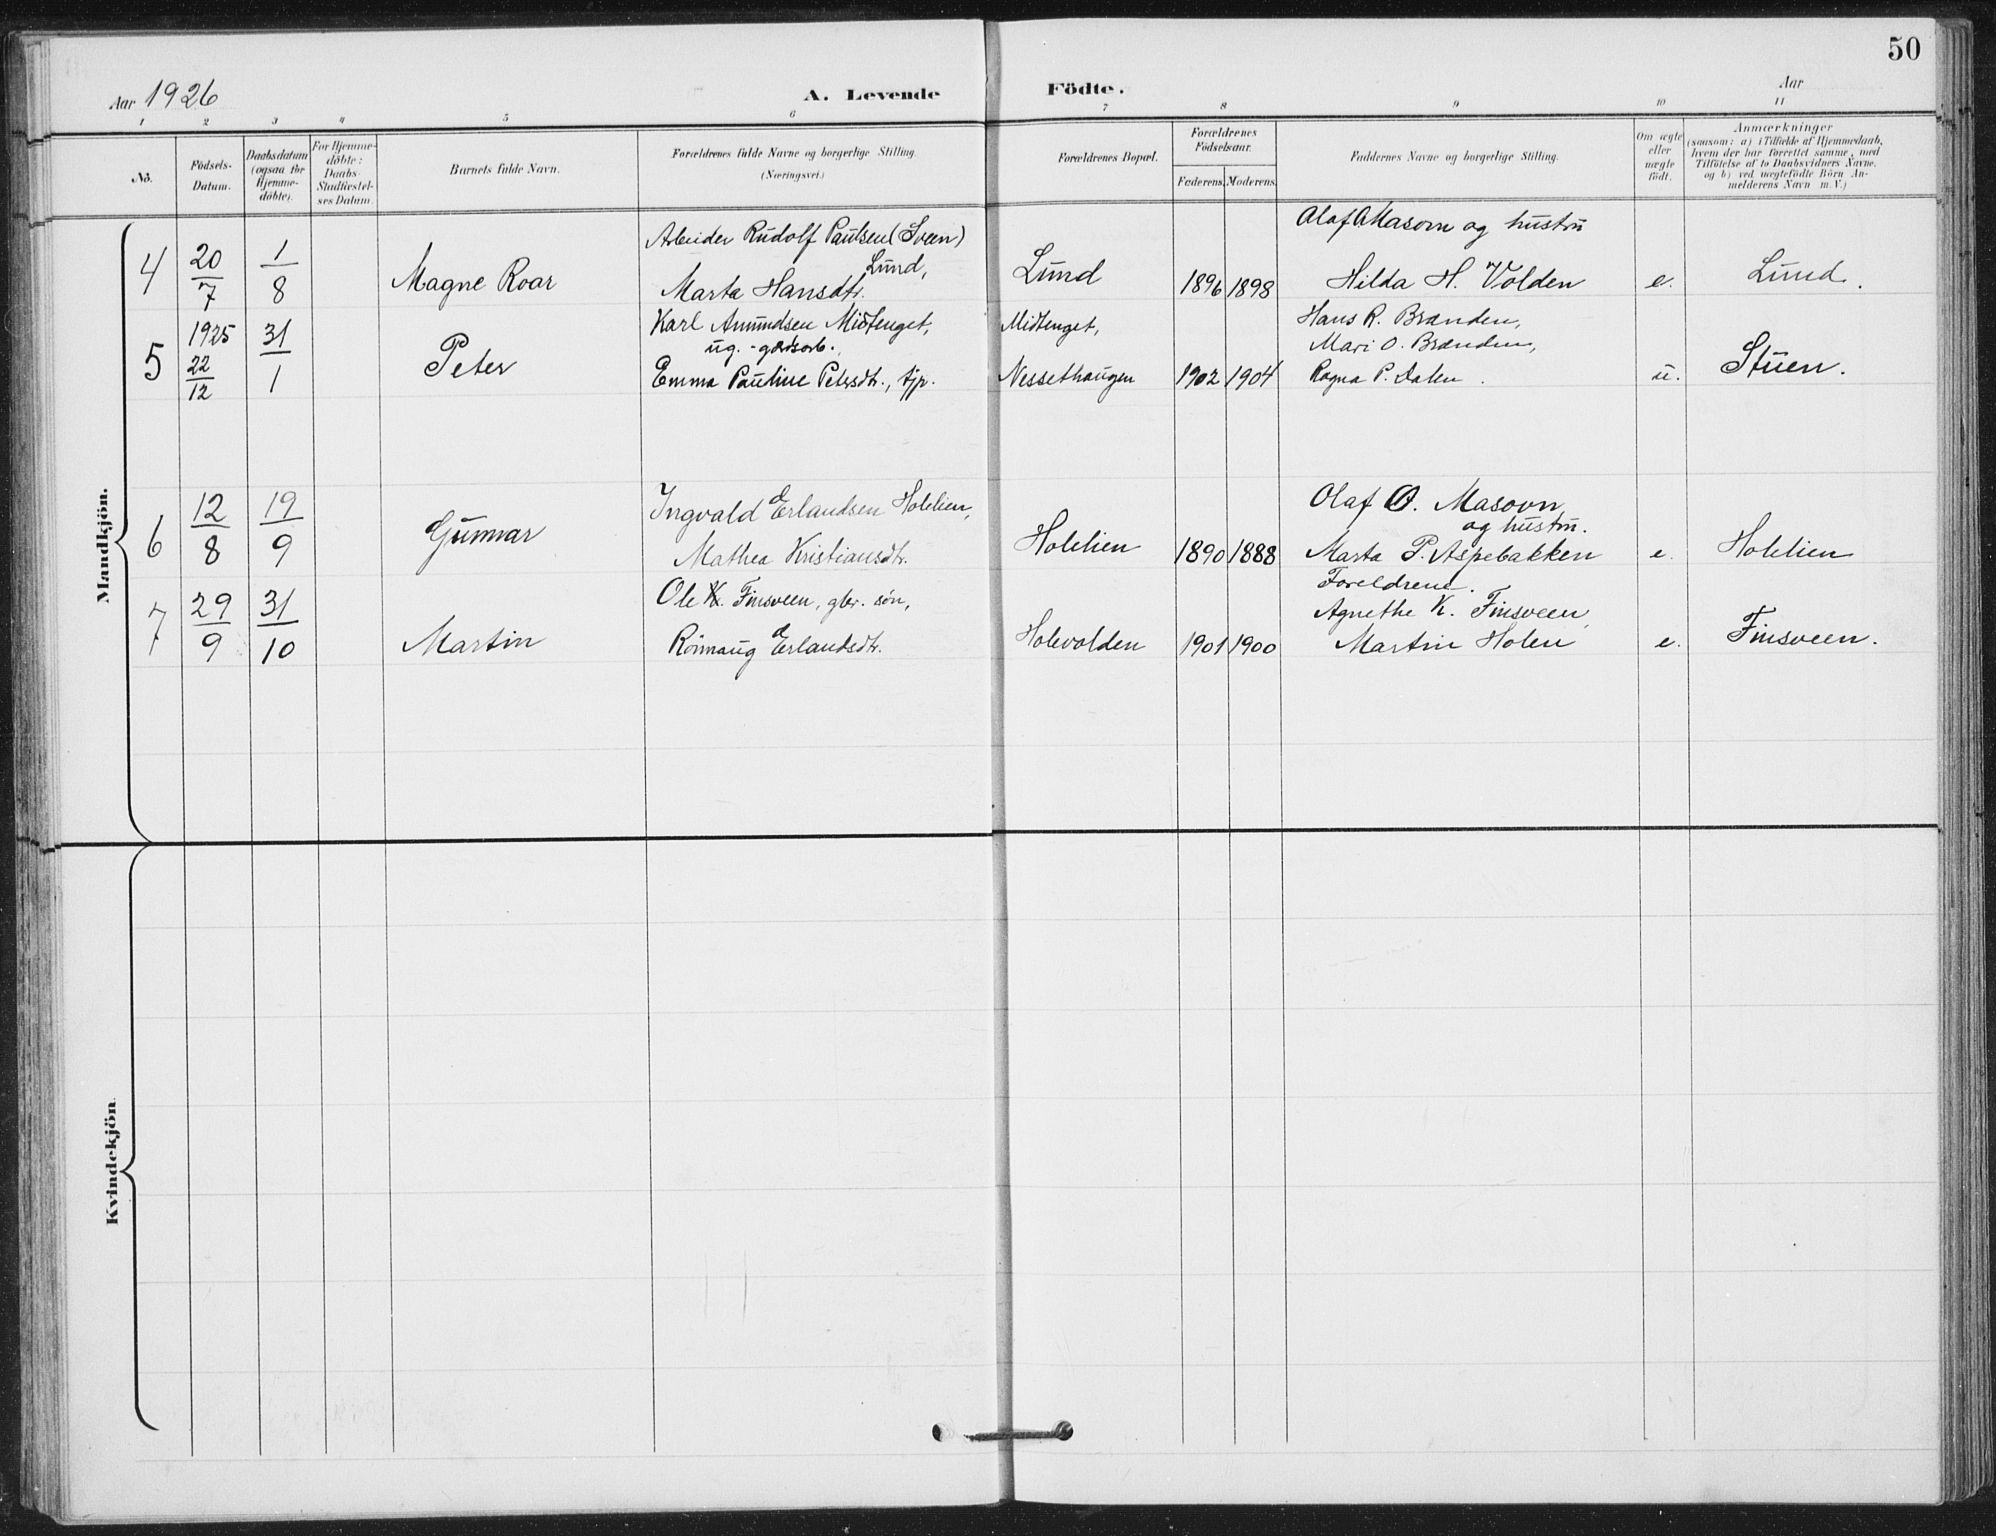 50
Aar 1926 A. Levende Födte. Aar
1 2 3 4 5 6 7 8 9 10 11
No.
Födsels-
Datum.
Daabsdatum
(ogsaa for
Hjemme-
döbte).
For Hjemme-
döbte:
Daabs-
Stadfæstel-
ses Datum.
Barnets fulde Navn.
Forældrenes fulde Navne og borgerlige Stilling.
(Næringsvei.)
Forældrenes Bopæl.
Forældrenes
Födselsaar.
Faderens. Moderens.
Faddernes Navne og borgerlige Stilling.
Om ægte
eller
uægte
födt.
Anmærkninger
(saasom: a) i Tilfælde af Hjemmedaab,
hvem der har forrettet samme, med
Tilföielse af to Daabsvidners Navne.
og b) ved uægtefödte Börn An-
melderens Navn m.V.)
Mandkjön.
4 20/7 1/8 Magne Roar
Arbeider Rudolf Paulsen (Sveen)
Lund,
Marta Hansdtr.
Lund 1896 1898
Olaf O Masovn og hustru
Hilda H. Volden
e. Lund.
5 1925 22/12 31/1 Peter
Karl Amundsen Midtenget,
ug. - gårdsarb.
Emma Pauline Petersdtr., tjp.
Midtenget,
Nessethaugen 1902 1904
Hans R. Brænden,
Mari O. Brænden,
Ragna P. Dalen.
u. Stuen.
6 12/8 19/9 Gunnar
Ingvald Erlandsen Holelien,
Mathea Kristiansdtr.
Holelien 1890 1888
Olaf O. Masovn
og hustru.
Marta P. Aspebakken
Foreldrene.
e. Holelien
7 29/9 31/10 Martin
Ole K. Finsveen, gbr. søn,
Rönnaug Erlandsdtr.
Holevolden 1901 1900
Agnethe K. Finsveen,
Martin Holen
e. Finsveen.
Kvindekjön.